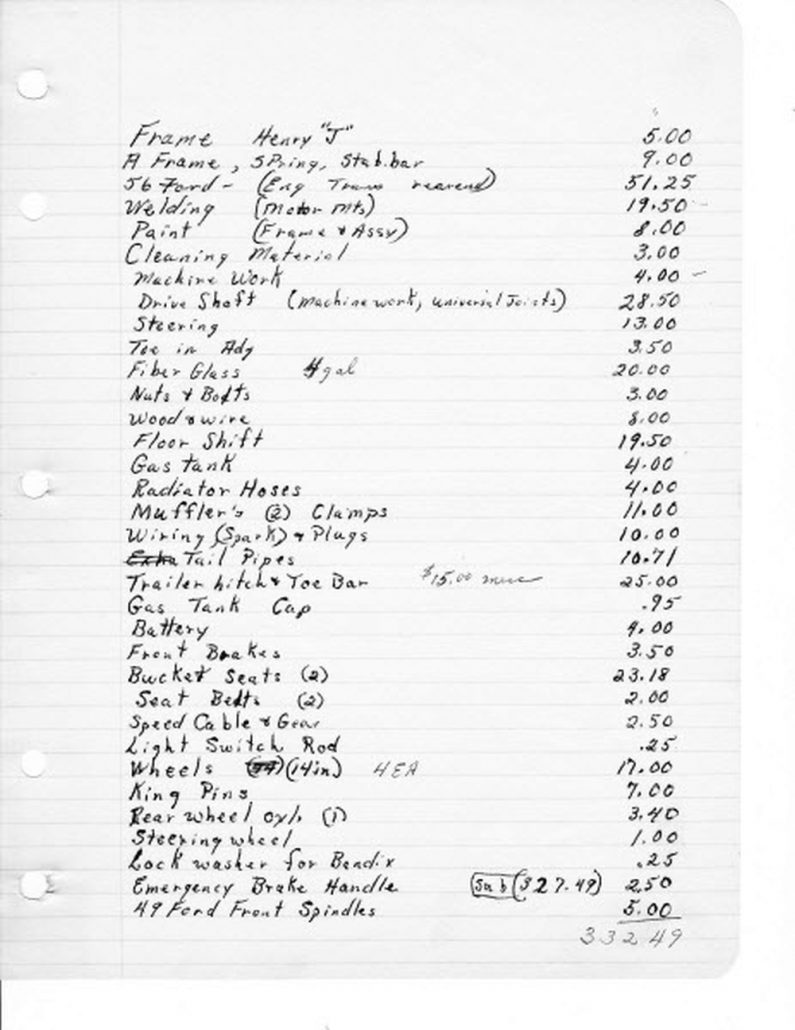 Frame Henry "J" 5.00
A Frame, Spring, Stab.bar 9.00
56 Ford - (Eng Trans rearend) 51.25
Welding (Motor Mts) 19.50
Paint (Frame & Assy) 8.00
Cleaning Material 3.00
Machine Work 4.00
Drive Shaft (Machine work, universal Joists) 28.50
Steering 13.00
Toe in Adj 3.50
Fiber Glass 4 gal 20.00
Nuts & Bolts 3.00
Wood & wire 8.00
Floor Shift 19.50
Gas tank 4.00
Radiator Hoses 4.00
Muffler's (2) Clamps 11.00
Wiring (Spark) & Plugs 10.00
Tail Pipes 10.71
Trailer hitch & Toe Bar $15.00 25.00
Gas Tank Cap .95
Battery 4.00
Front Brakes 3.50
Bucket Seats (2) 23.18
Seat Belts (2) 2.00
Speed Cable & Gear 2.50
Light Switch Rod .25
Wheels (14in) 4EA 17.00
King Pins 7.00
Rear wheel cyl. (1) 3.40
Steering wheel 1.00
Lock washer for Bendix .25
Emergency Brake Handle Sub (327.49) 2.50
49 Ford Front Spindles 5.00
332.49